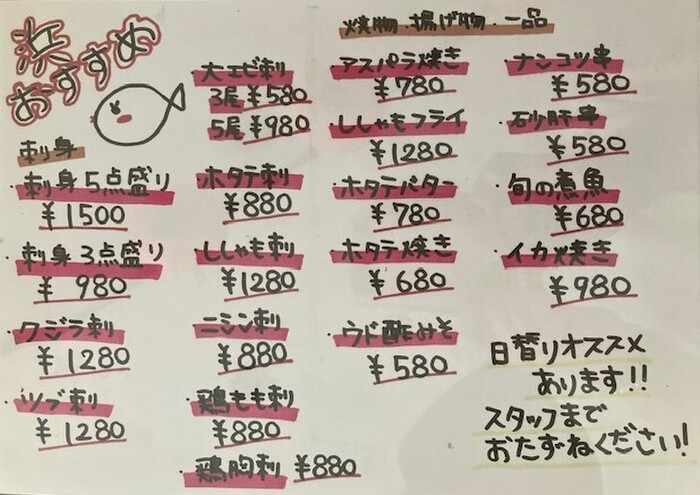 浜
おすすめ
刺身
・刺身5点盛り
¥1500
・刺身3点盛り
¥980
・クジラ刺
¥1280
・ツブ刺
¥1280
大エビ刺
3尾 ¥580
5尾 ¥980
・ホタテ刺
¥880
・ししゃも刺
¥1280
・ニシン刺
¥880
・鶏もも刺
¥880
・鶏胸刺 ¥880
焼物・揚げ物・一品
・アスパラ焼き
¥780
・ししゃもフライ
¥1280
・ホタテバター
¥780
・ホタテ焼き
¥680
・ウド酢みそ
¥580
・ナンコツ串
¥580
・砂肝串
¥580
・旬の煮魚
¥680
・イカ焼き
¥980
日替りオススメ
あります!!
スタッフまで
おたずねください!